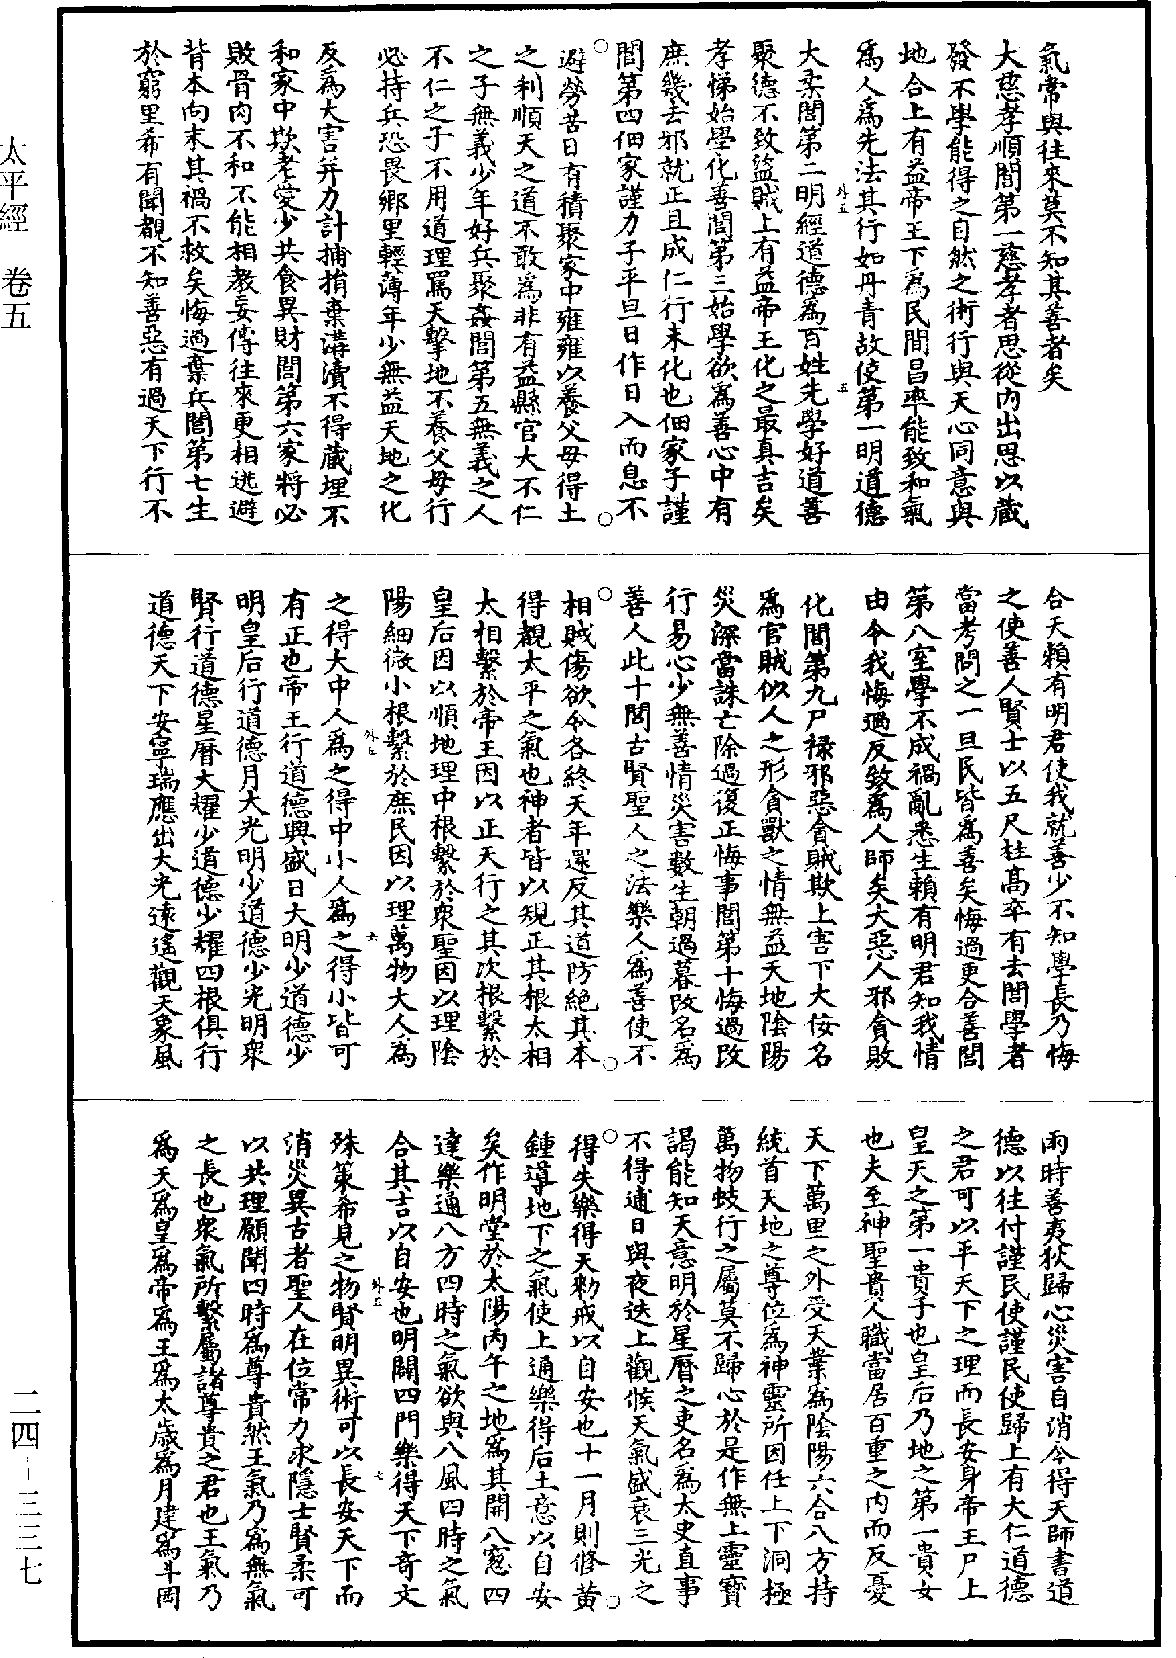 氣常與往來莫不知其善者矣
大慈孝順閭第一慈孝者思從內出思以藏
發不學能得之自然之術行與天心同意與
地合上有益帝王下為民間昌率能致和氣
為人為先法其行如丹青故使第一明道德
外五
五
大柔閭第二明經道德為百姓先學好道善
聚德不致盜賊上有益帝王化之最真吉矣
孝悌始學化善閭第三始學欲為善心中有
庶幾去邪就正且成仁行未化也佃家子謹
閭第四佃家謹力子平旦日作日入而息不
避勞苦日有積聚家中雍雍以養父母得土
之利順天之道不敢為非有益縣官大不仁
之子無義少年好兵聚姦閭第五無義之人
不仁之子不用道理罵天擊地不養父母行
必持兵恐畏鄉里輕薄年少無益天地之化
反為大害并力計捕捐棄溝瀆不得藏埋不
和家中欺老愛少共食異財閭第六家將必
敗骨肉不和不能相教妄傳往來更相逃避
背本向末其禍不救矣悔過棄兵閭第七生
於窮里希有聞覩不知善惡有過天下行不
合天賴有明君使我就善少不知學長乃悔
之使善人賢士以五尺柱高卒有去閭學者
當考問之一旦民皆為善矣悔過更合善閭
第八室學不成禍亂悉生賴有明君知我情
由今我悔過反致為人師矣大惡人邪貪敗
化閭第九尸祿邪惡貪賊欺上害下大佞名
為官賊似人之形貪獸之情無益天地陰陽
災深當誅亡除過復正悔事閭第十悔過改
行易心少無善情災害數生朝過暮改名為
善人此十閭古賢聖人之法樂人為善使不
相賊傷欲令各終天年還反其道防絕其本
得覩太平之氣也神者皆以規正其根太相
太相繫於帝王因以正天行之其次根繫於
皇后因以順地理中根繫於衆聖因以理陰
陽細微小根繫於庶民因以理萬物大人為
外七
六
之得大中人為之得中小人為之得小皆可
有正也帝王行道德興盛日大明少道德少
明皇后行道德月大光明少道德少光明衆
賢行道德星曆大耀少道德少耀四根俱行
道德天下安寧瑞應出大光遠遙觀天象風
雨時善夷狄歸心災害自消今得天師書道
德以往付謹民使謹民使歸上有大仁道德
之君可以平天下之理而長安身帝王尸上
皇天之第一貴子也皇后乃地之第一貴女
也夫至神聖貴人職當居百重之內而反憂
天下萬里之外受天業為陰陽六合八方持
統首天地之尊位為神靈所因任上下洞極
萬物蚑行之屬莫不歸心於是作無上靈寶
謁能知天意明於星曆之吏名為太史直事
不得逋日與夜迭上觀候天氣盛衰三光之
得失樂得天勑戒以自安也十一月則修黃
鍾導地下之氣使上通樂得后土意以自安
矣作明堂於太陽丙午之地為其開八窓四
達樂通八方四時之氣欲與八風四時之氣
合其吉以自安也明闢四門樂得天下奇文
外五
七
殊策希見之物賢明異術可以長安天下而
消災異古者聖人在位常力求隱士賢柔可
以共理願聞四時為尊貴然王氣乃為無氣
之長也衆氣所繫屬諸尊貴之君也王氣乃
為天為皇為帝為王為太歲為月建為斗岡
太平經　卷五
二四－三三七